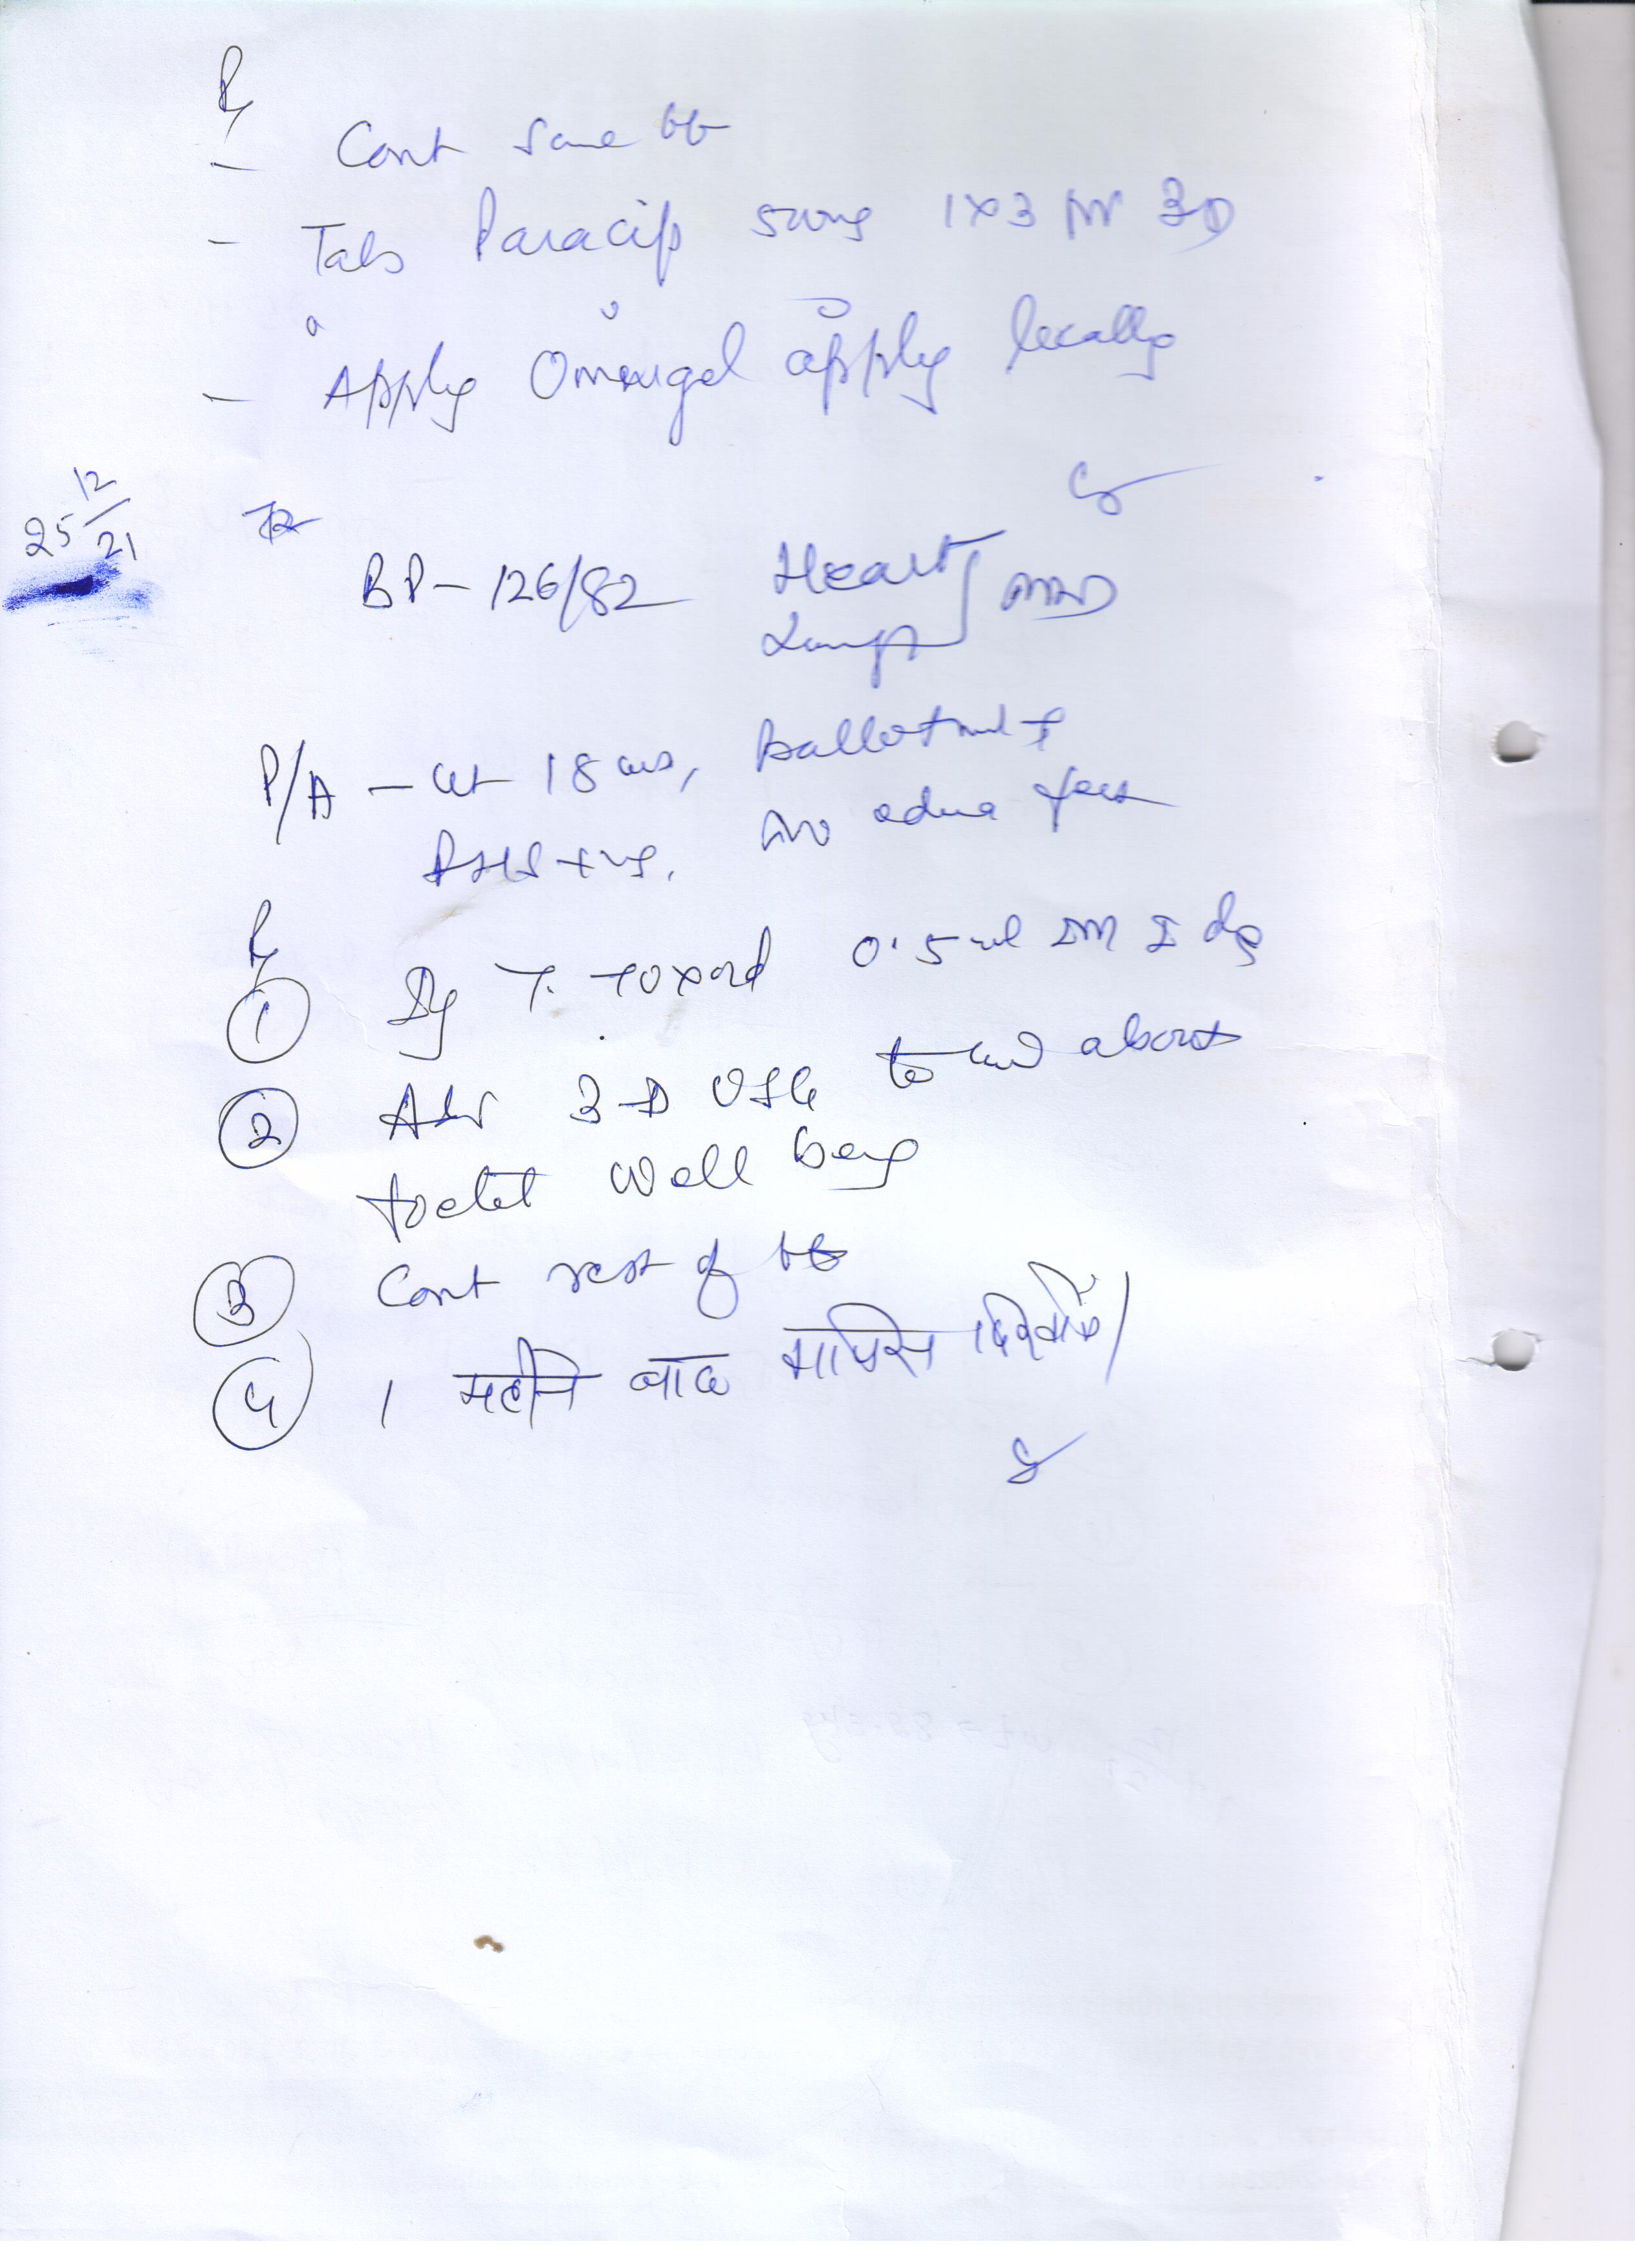 R
- Cont same tt
- Tab Paracip 500mg 1x3 for 3D
- Apply Omnigel apply locally
25 12/21
BP - 126/82 Heart Lungs } NAD
P/A - Ut 18 wks, Ballotment +
FHS +ve, no edema feet
R
① Inj T. toxoid 0.5 ml IM I dg
② Adv 3-D USG to about
foetal well being
③ Cont rest of tt
④ 1 महीने बाद वापिस दिखायें।